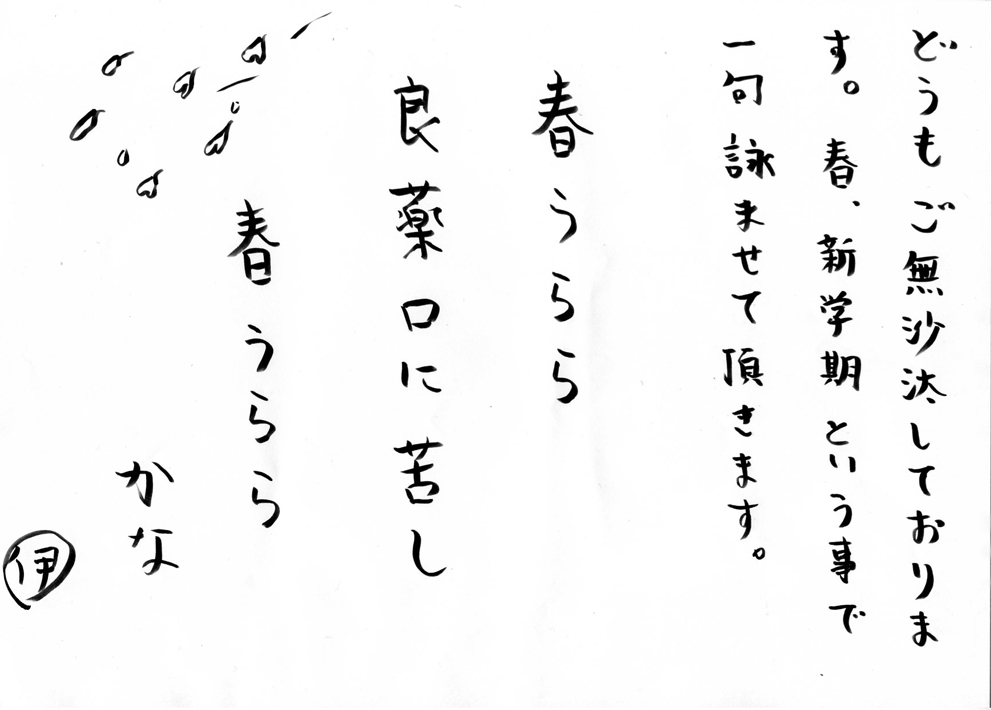 どうもご無沙汰しておりま
す。春、新学期という事で
一句詠ませて頂きます。
春うらら
良薬口に苦し
春うらら
かな
伊